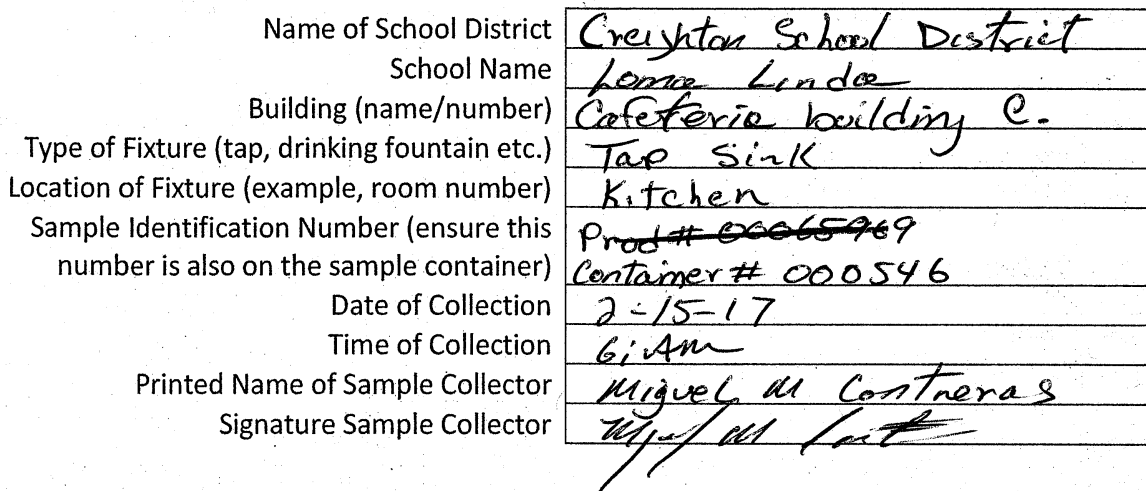 Name of School District Creighton School District
School Name Loma Linda
Building (name/number) Cafeteria building C.
Type of Fixture (tap, drinking fountain etc.) Tap Sink
Location of Fixture (example, room number) Kitchen
Sample Identification Number (ensure this Prod# 00065969
number is also on the sample container) Container# 000546
Date of Collection 2-15-17
Time of Collection 6:AM
Printed Name of Sample Collector Miguel M Contreras
Signature Sample Collector